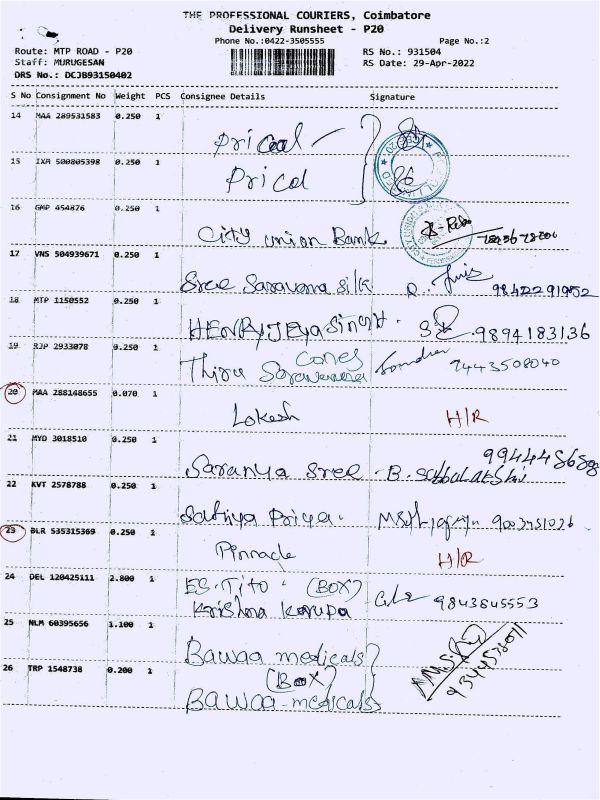 THE PROFESSIONAL COURIERS, Coimbatore
Delivery Runsheet - P20
Phone No.:0422-3505555 Page No.:2
Route: MTP ROAD - P20 RS No.: 931504
Staff: MURUGESAN RS Date: 29-Apr-2022
DRS No.: DCJB93150402
S No Consignment No Weight PCS Consignee Details Signature
14 MAA 289531583 0.250 1
Pricol
15 IXM 500805398 0.250 1
Pricol
16 GMP 454876 0.250 1
City union Bank
17 VNS 504939671 0.250 1
Sree Saravana silk R.
18 MTP 1150552 0.250 1
HENRY JEYA Singh. 9894183136
19 RJP 2933078 0.250 1
Cones
Thiru Saravana 7443508040
20 MAA 288148655 0.070 1
Lokesh H/R
21 MYD 3018510 0.250 1
Saranya Sree - B. Subbulakshmi
22 KVT 2578788 0.250 1
Sathya Priya.
23 BLR 535315369 0.250 1
Pinnacle H/R
24 DEL 120425111 2.800 1
ES. Tito. (BOX)
Krishna Karupa 9843845553
25 NLM 60395656 1.100 1
Bawaa medicals
(Box)
26 TRP 1548738 0.200 1
Bawaa - medicals